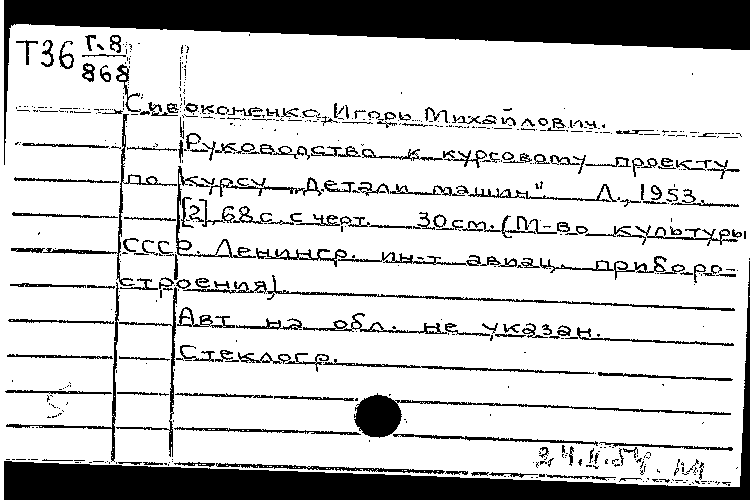 Т36 Г.8
868
Сивоконенко, Игорь Михайлович.
Руководство к курсовому проекту
по курсу „Детали машин" Л., 1953.
[2], 68 с. с черт. 30 см. (М-во культуры
СССР. Ленингр. ин-т авиац. приборо-
строения).
Авт на обл. не указан.
Стеклогр.
5
24.II.54.